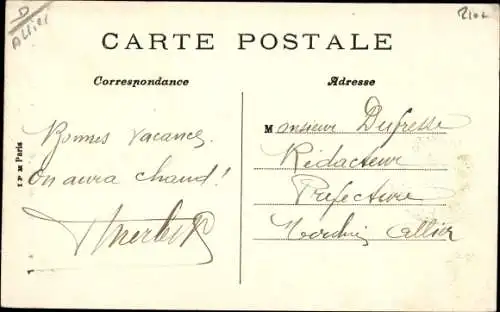 Allier
CARTE POSTALE
Correspondance
Adresse
Bonnes vacances.
On aura chaud!
Monsieur Dufresse
Rédacteur
Préfecture
Moulins Allier
I P M Paris